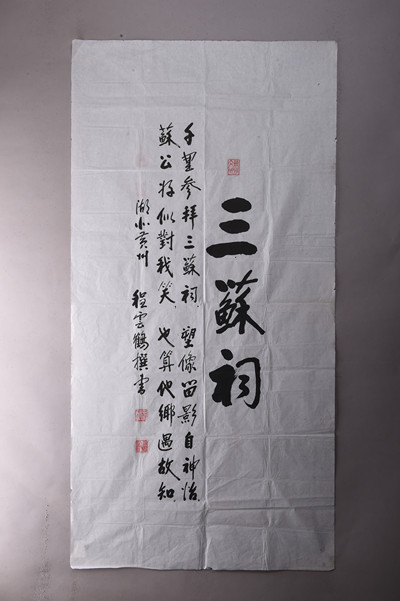 三蘇祠
千里參拜三蘇祠，塑像留影自神怡，
蘇公好似對我笑，也算他鄉遇故知。
湖北黃州 程雲鶴撰書